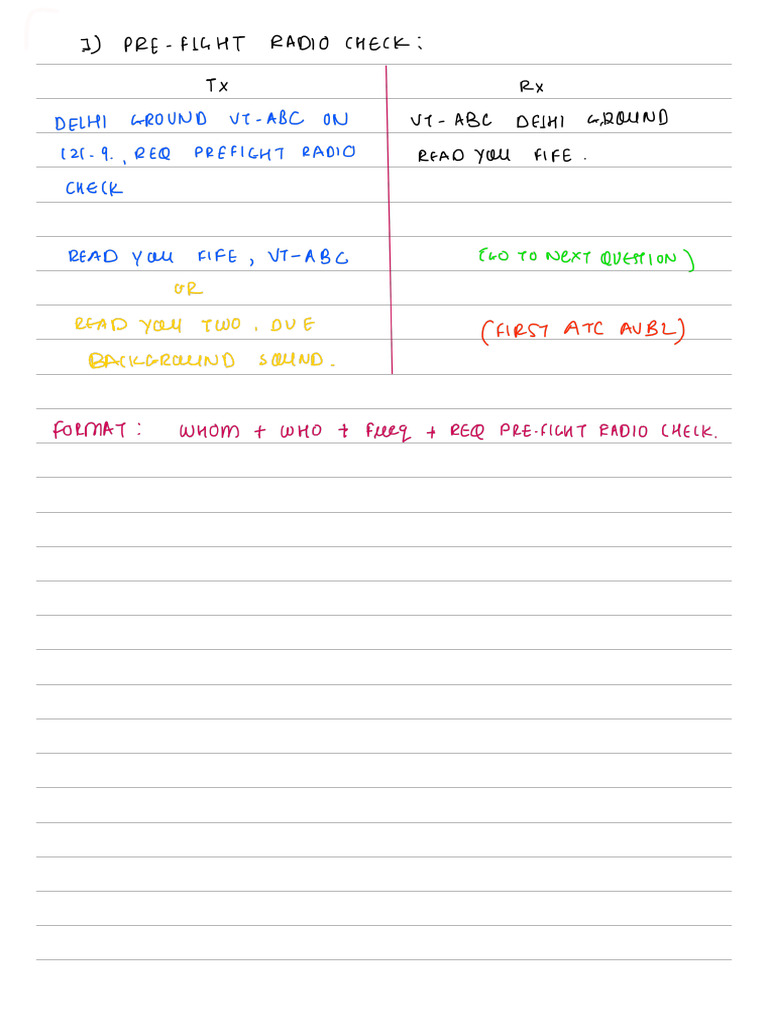 1) PRE-FIGHT RADIO CHECK:
Tx
DELHI GROUND VT-ABC ON
121.9., REQ PREFIGHT RADIO
CHECK
READ YOU FIFE, VT-ABC
OR
READ YOU TWO, DUE
BACKGROUND SOUND.
Rx
VT-ABC DELHI GROUND
READ YOU FIFE.
(GO TO NEXT QUESTION)
(FIRST ATC AVBL)
FORMAT: WHOM + WHO + Freq + REQ PRE-FIGHT RADIO CHECK.